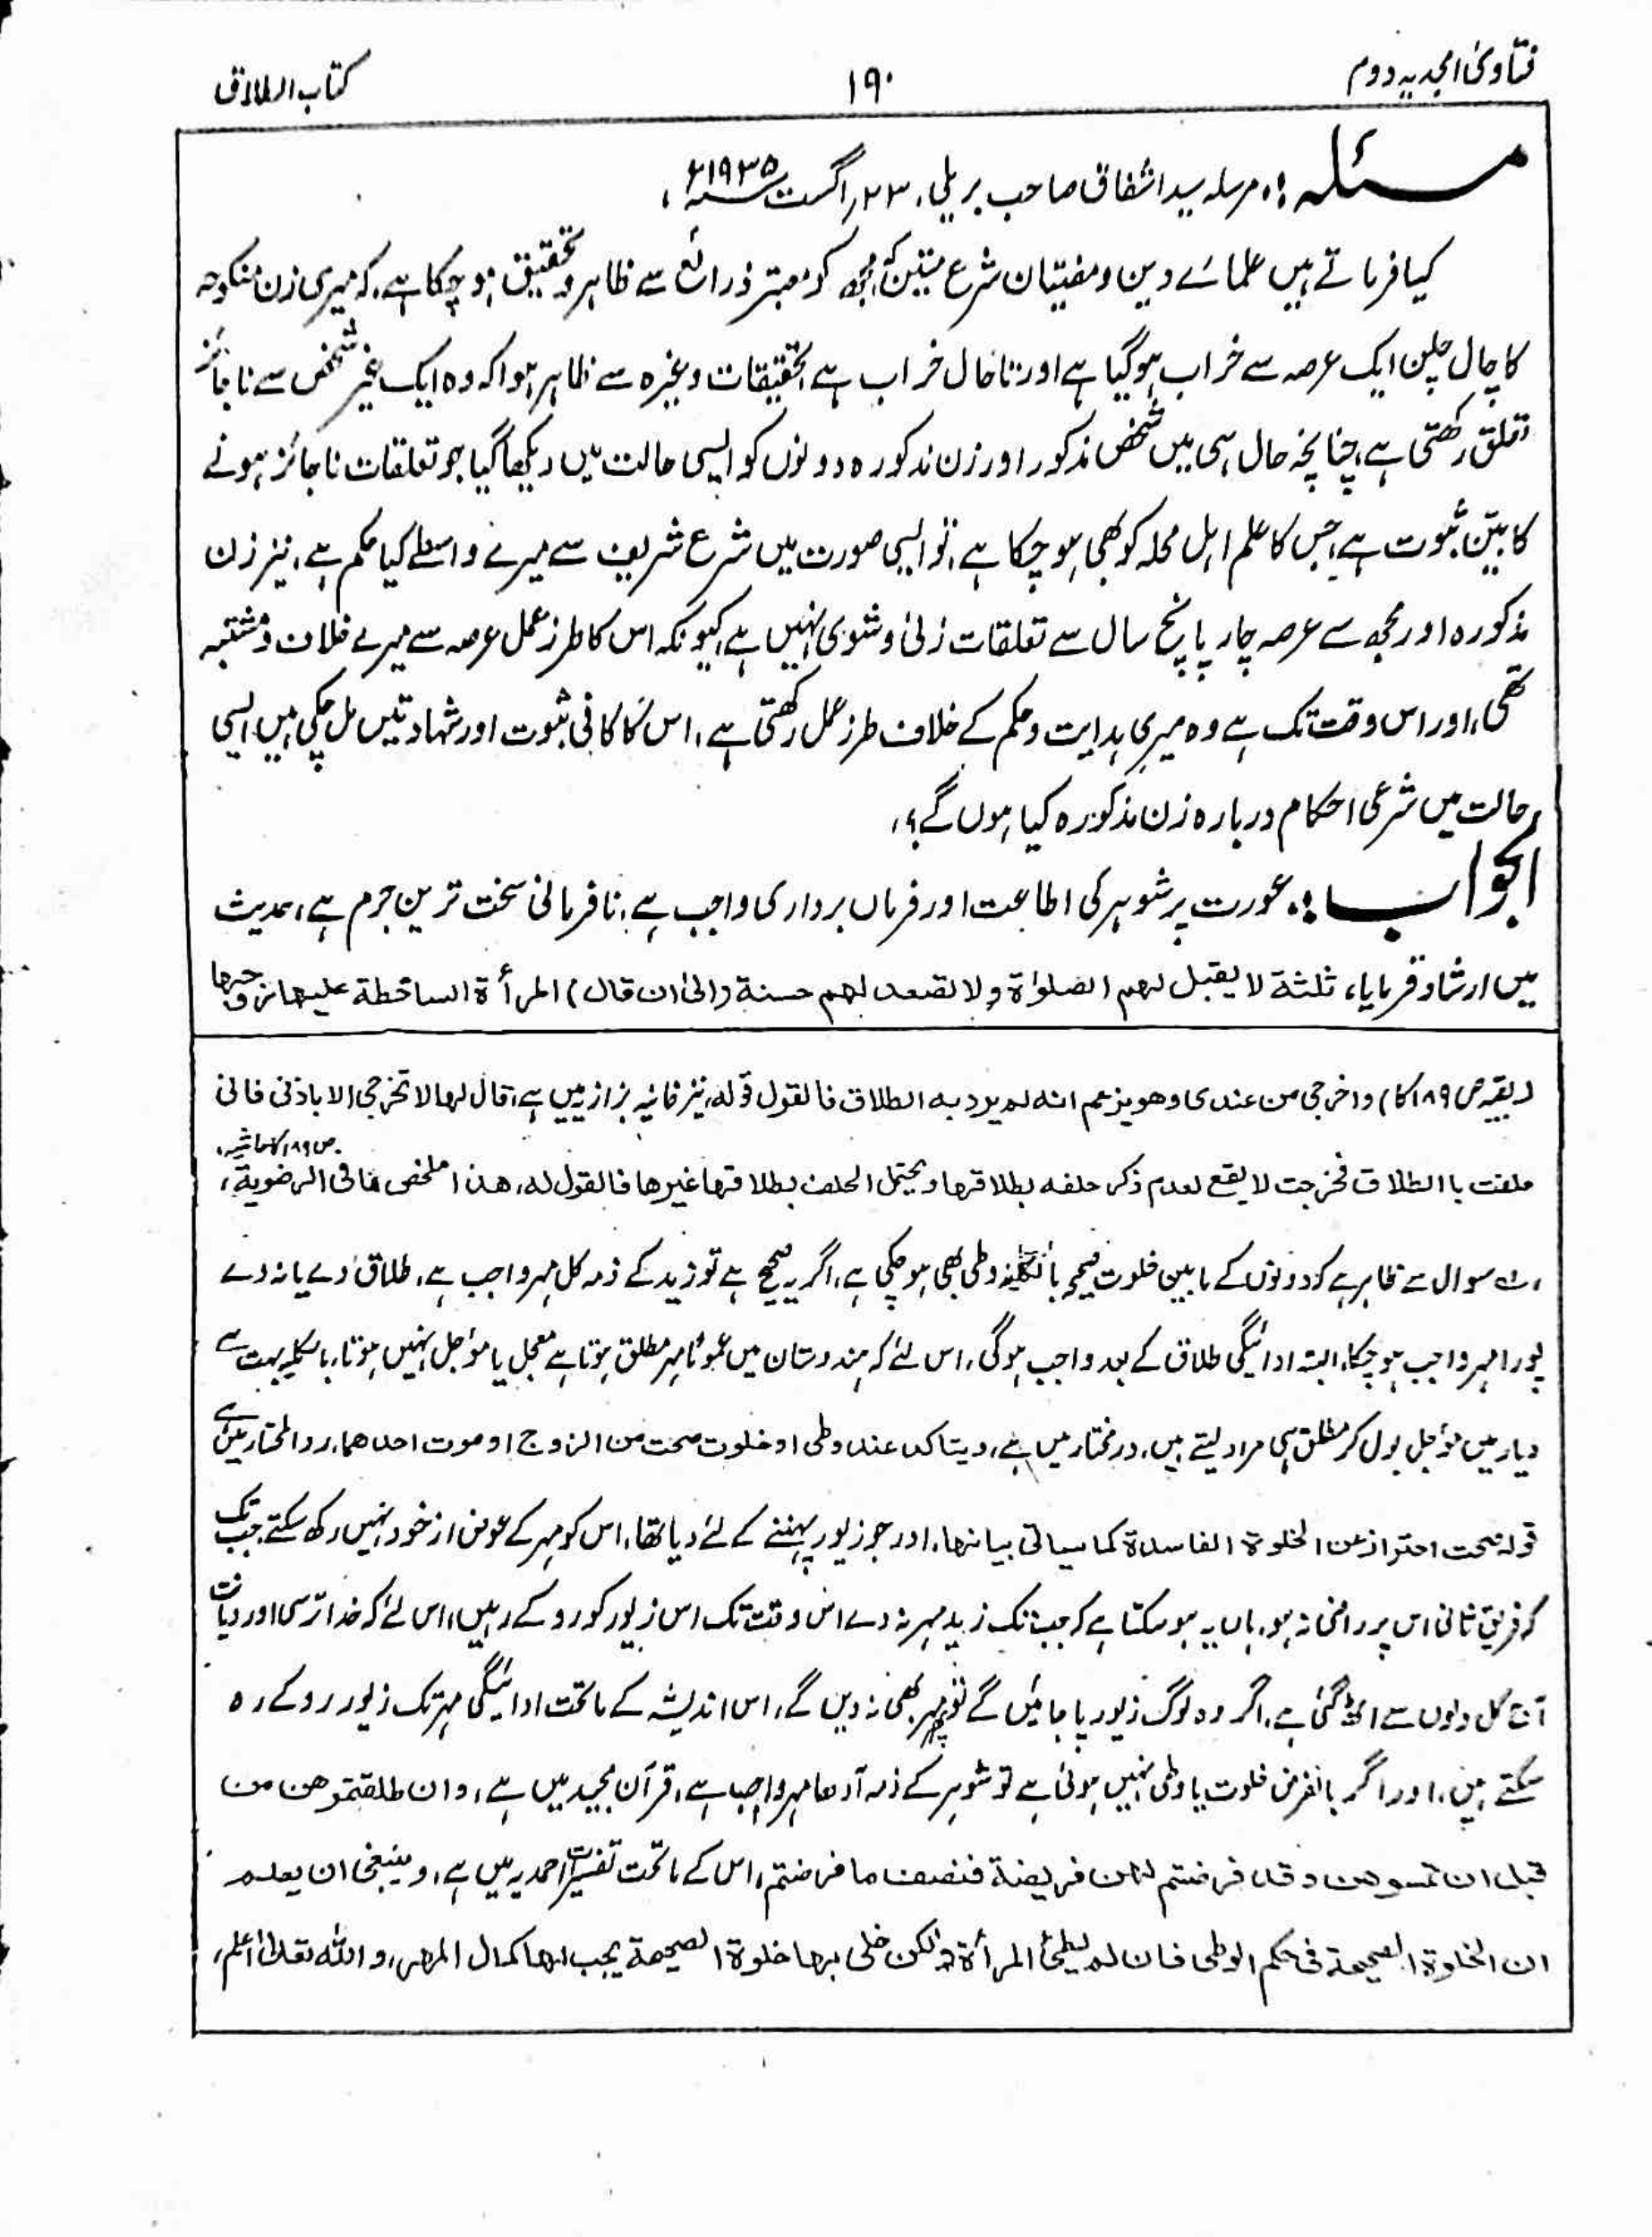 فتاویٰ امجدیہ دوم
۱۹۰
کتاب الطلاق
مسئلہ:۔ مرسلہ سید اشفاق صاحب بریلی، ۲۳؍ اگست ۱۹۳۵ء،
کیا فرماتے ہیں علمائے دین و مفتیان شرع متین کہ مجھ کو معتبر ذرائع سے ظاہر و تحقیق ہو چکا ہے، کہ میری زن منکوحہ
کا چال چلن ایک عرصہ سے خراب ہوگیا ہے اور تاحال خراب ہے تحقیقات وغیرہ سے ظاہر ہوا کہ وہ ایک غیر شخص سے ناجائز
تعلق رکھتی ہے، چنانچہ حال ہی میں شخص مذکور اور زن مذکورہ دونوں کو ایسی حالت میں دیکھا گیا جو تعلقات ناجائز ہونے
کا بیّن ثبوت ہے، جس کا علم اہل محلہ کو بھی ہو چکا ہے، تو ایسی صورت میں شرع شریف سے میرے واسطے کیا حکم ہے، نیز زن
مذکورہ اور مجھ سے عرصہ چار پانچ سال سے تعلقات زنی و شوی نہیں ہے، کیونکہ اس کا طرز عمل عرصہ سے میرے خلاف و مشتبہ
تھی، اور اس وقت تک ہے وہ میری ہدایت و حکم کے خلاف طرز عمل رکھتی ہے، اس کا کافی ثبوت اور شہادتیں مل چکی ہیں، ایسی
حالت میں شرعی احکام دربارہ زن مذکورہ کیا ہوں گے؟،
الجواب:۔ عورت پر شوہر کی اطاعت اور فرماں برداری واجب ہے، نافرمانی سخت ترین جرم ہے، حدیث
میں ارشاد فرمایا، ثلثة لا یقبل لهم الصلوٰة ولا تصعد لهم حسنة (الیٰ ان قال) المرأة الساخطة علیها زوجها
(بقیہ ص ۱۸۹ کا) واخرجی من عندی وهو یزعم انه لم یرد به الطلاق فالقول قوله، نیز خانیہ بزازیہ میں ہے، قال لها لا تخرجی الا باذنی فانی
حلفت باالطلاق فخرجت لا یقع لعدم ذکر حلفه بطلاقها ویحتمل الحلف بطلاق غیرها فالقول له، هذا ملخص ما فی الرضویة،
ص ۱۸۹ کا حاشیہ،
، سوال سے ظاہر ہے کہ دونوں کے مابین خلوت صحیحہ بلکہ وطی بھی ہو چکی ہے، اگر یہ صحیح ہے تو زید کے ذمہ کل مہر واجب ہے، طلاق دے یا نہ دے
پورا مہر واجب ہو چکا، البتہ ادائیگی طلاق کے بعد واجب ہوگی، اس لئے کہ ہندوستان میں عموماً مہر مطلق ہوتا ہے معجل یا مؤجل نہیں ہوتا، بلکہ بہت سے
دیار میں مؤجل بول کر مطلق ہی مراد لیتے ہیں، درمختار میں ہے، ویتاکد عند وطی او خلوت صحت من الزوج او موت احدهما، ردالمحتار میں ہے
قوله صحت احتراز عن الخلوة الفاسدة کما سیاتی بیانها، اور جو زیور پہننے کے لئے دیا تھا، اس کو مہر کے عوض از خود نہیں رکھ سکتے جب تک
کہ فریق ثانی اس پر راضی نہ ہو، ہاں یہ ہو سکتا ہے کہ جب تک زید مہر نہ دے اس وقت تک اس زیور کو روکے رہیں، اس لئے کہ خدا ترسی اور دیانت
آج کل دلوں سے اٹھ گئی ہے، اگر وہ لوگ زیور پا جائیں گے تو مہر بھی نہ دیں گے، اس اندیشہ کے ماتحت ادائیگی مہر تک زیور روکے رہ
سکتے ہیں، اور اگر بالفرض خلوت یا وطی نہیں ہوئی ہے تو شوہر کے ذمہ آدھا مہر واجب ہے، قرآن مجید میں ہے، وان طلقتموهن من
قبل ان تمسوهن وقد فرضتم لهن فریضة فنصف ما فرضتم، اس کے ماتحت تفسیرات احمدیہ میں ہے، وینبغی ان یعلم
ان الخلوة الصحیحة فی حکم الوطی فان لم یطئ المرأة ولکن خلی بها خلوة الصحیحة یجب لها کمال المهر، واللہ تعالیٰ اعلم،